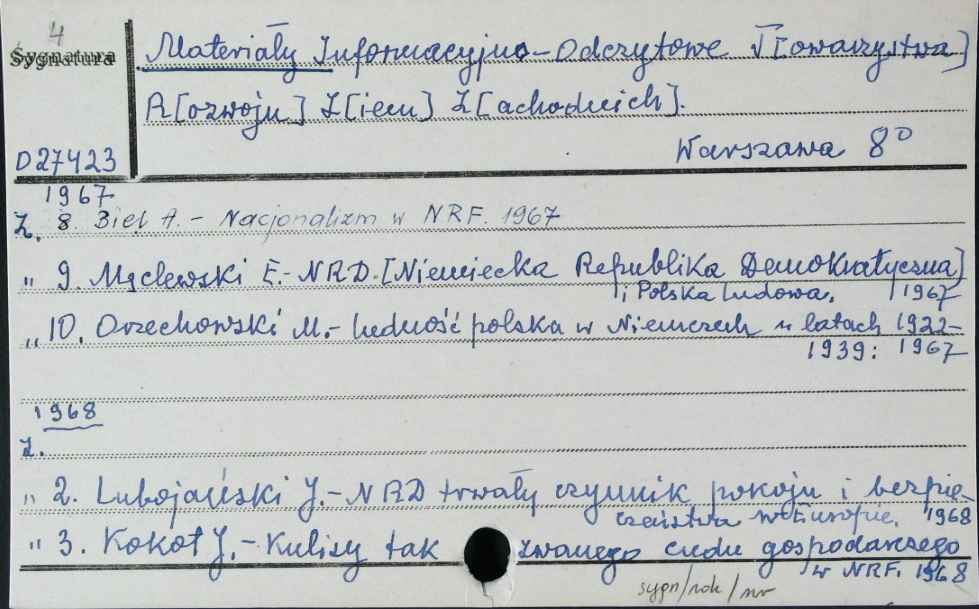 4
Sygnatura
Materiały Informacyjno-Odczytowe T[owarzystwa]
R[ozwoju] Z[iem] Z[achodnich].
D27423
Warszawa 8°
1967
Z. 8. Biel A. - Nacjonalizm w NRF. 1967
" 9. Męclewski E.- NRD.[Niemiecka Republika Demokratyczna]
i Polska Ludowa. 1967
" 10. Orzechowski M.- Ludność polska w Niemczech w latach 1922-
1939: 1967
1968
Z.
" 2. Lubojański J.- NRD trwały czynnik pokoju i bezpie-
czeństwa w Europie. 1968
" 3. Kokot J.- Kulisy tak zwanego cudu gospodarczego
w NRF. 1968
sygn/rok/nr